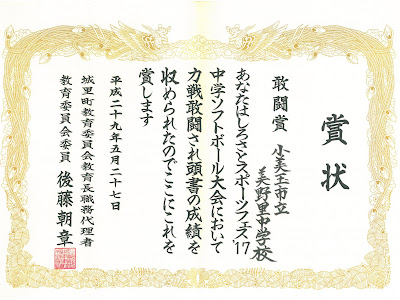 賞状
敢闘賞
小美玉市立
美野里中学校
あなたはしろさとスポーツフェス'17
中学ソフトボール大会において
力戦敢闘され頭書の成績を
収められたのでここにこれを
賞します
平成二十九年五月二十七日
城里町教育委員会教育長職務代理者
教育委員会委員 後藤朝章